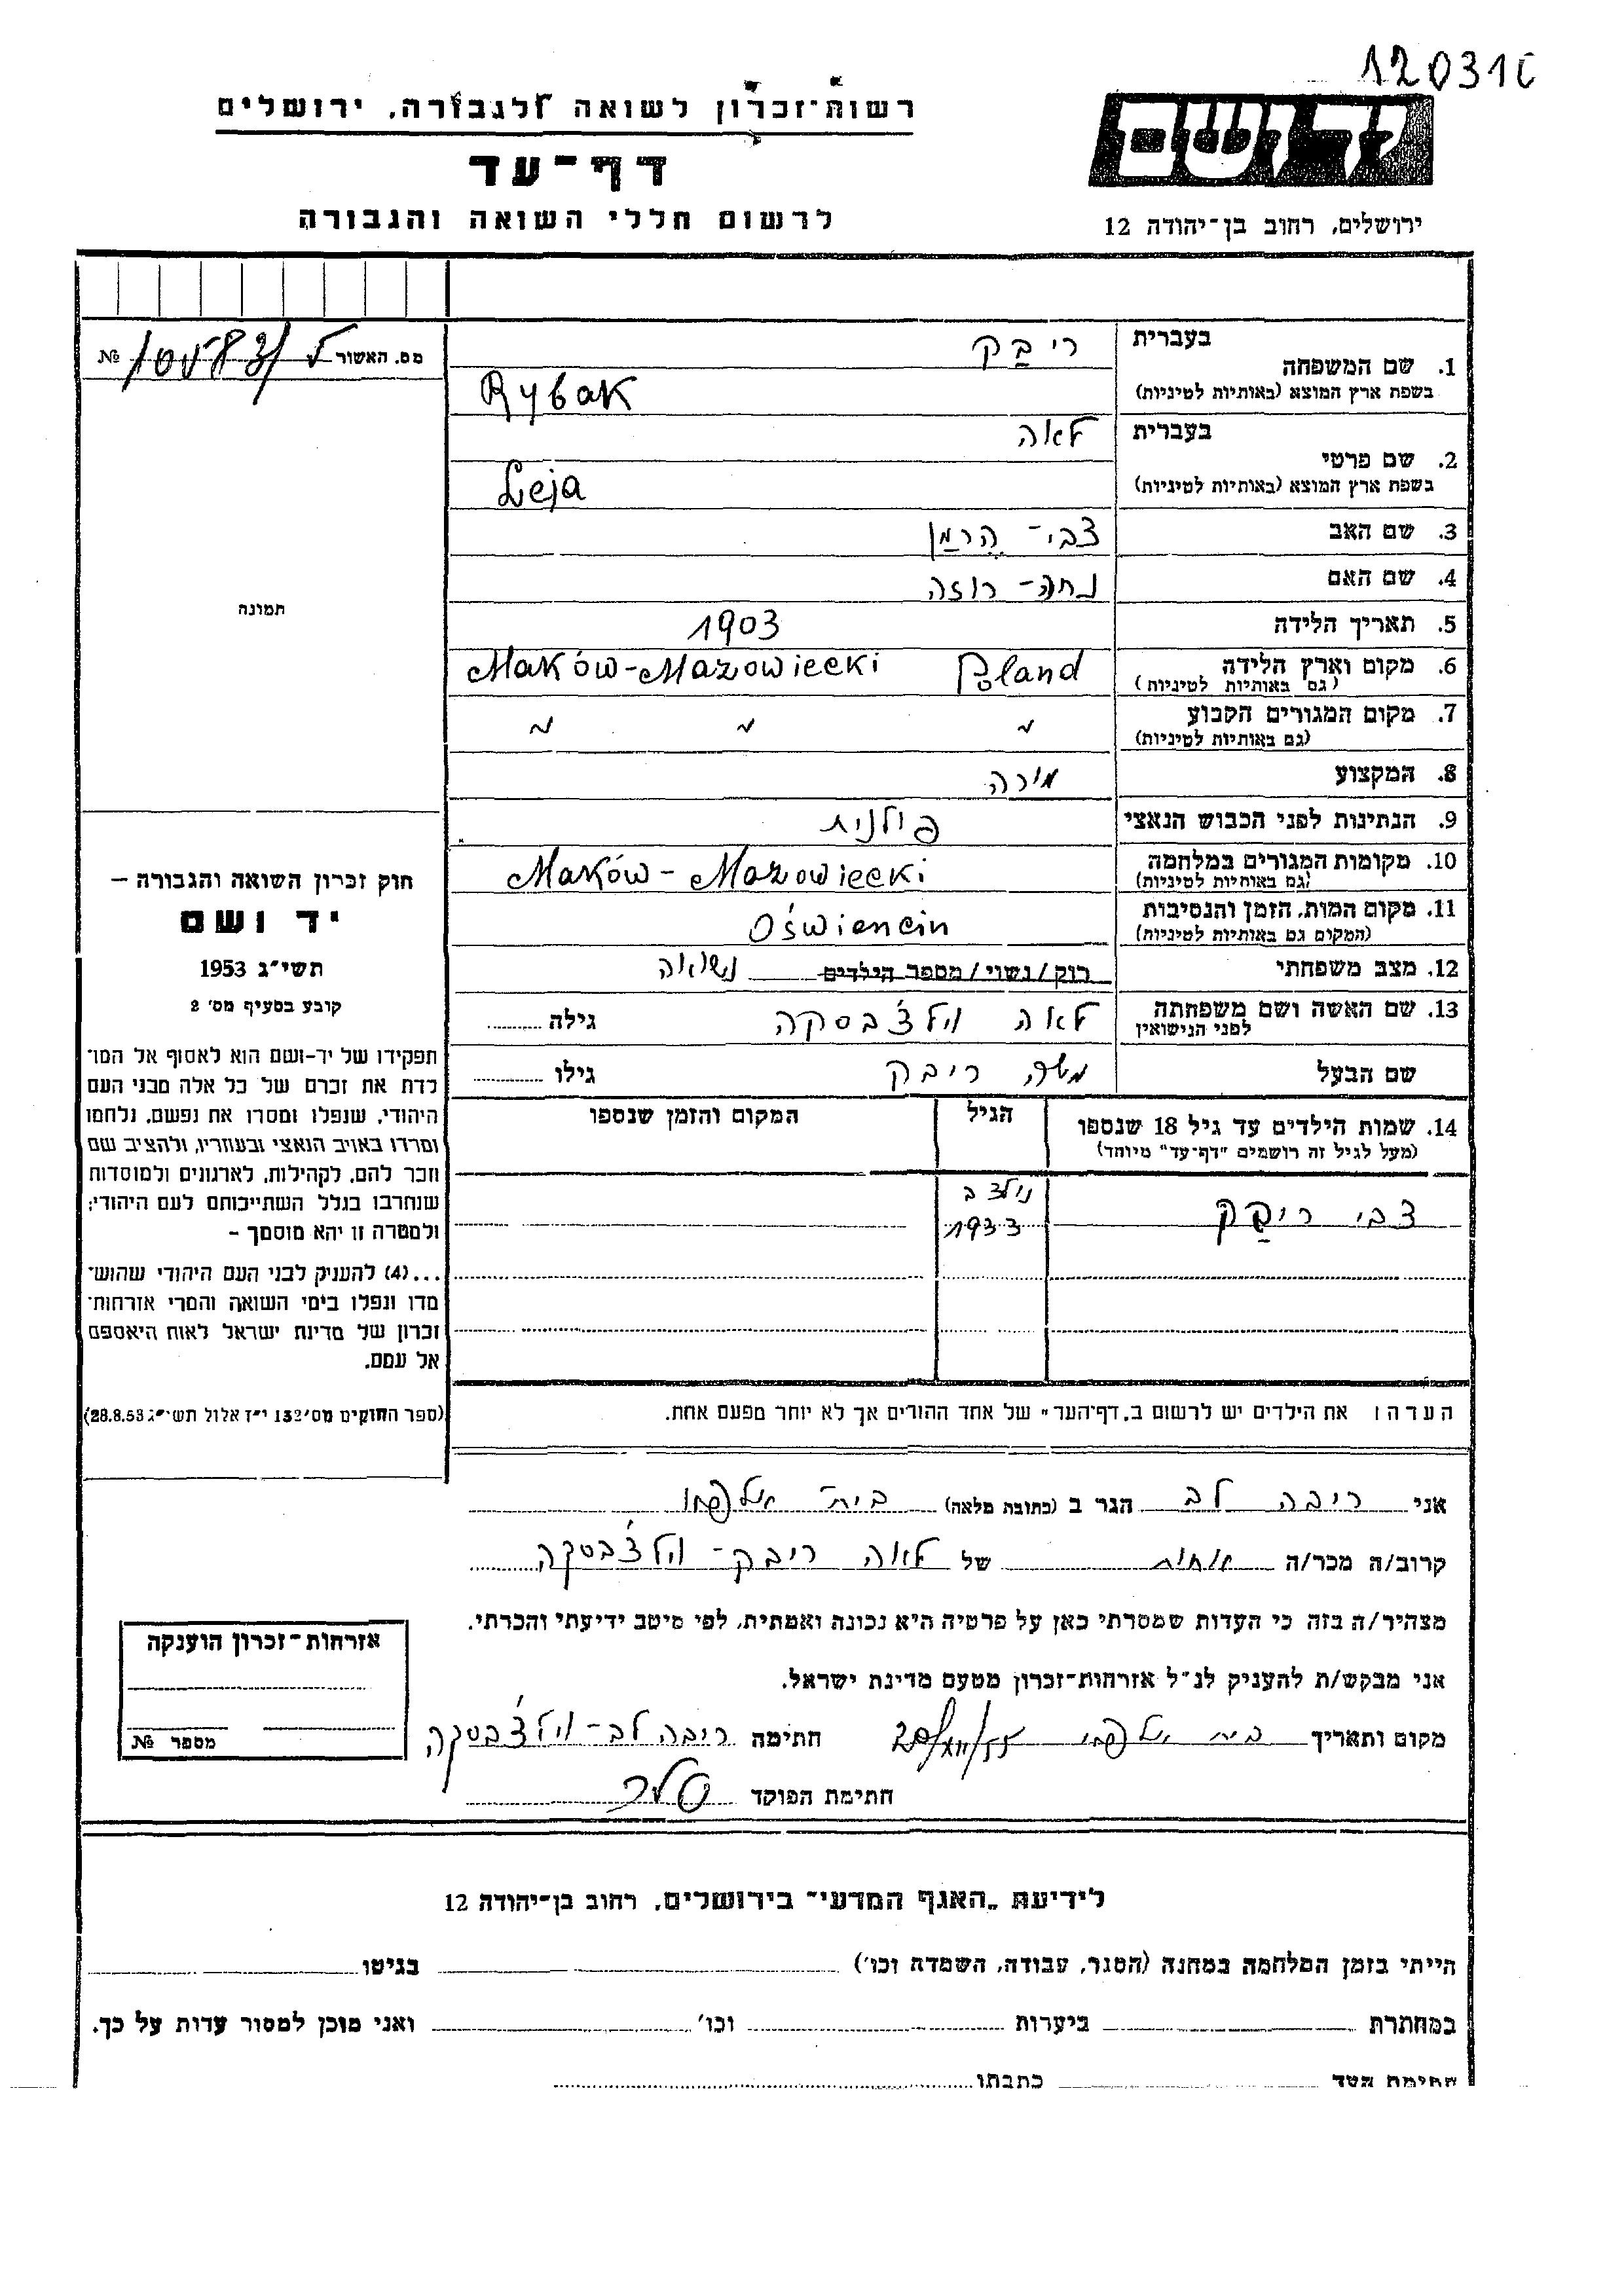 120310
רשות־זכרון לשואה ולגבורה, ירושלים
דף־עד
לרשום חללי השואה והגבורה
יד ושם
ירושלים, רחוב בן־יהודה 12
מס. האשור №
1. שם המשפחה
בעברית ריבק
בשפת ארץ המוצא (באותיות לטיניות) Rybak
2. שם פרטי
בעברית לאה
בשפת ארץ המוצא (באותיות לטיניות) Leja
3. שם האב צבי־הרמן
4. שם האם נחה־רוזה
5. תאריך הלידה 1903
6. מקום וארץ הלידה Maków-Mazowiecki Poland
(גם באותיות לטיניות)
7. מקום המגורים הקבוע " " "
(גם באותיות לטיניות)
8. המקצוע מורה
9. הנתינות לפני הכבוש הנאצי פולנית
10. מקומות המגורים במלחמה Maków - Mazowiecki
(גם באותיות לטיניות)
11. מקום המות, הזמן והנסיבות Oświencin
(המקום גם באותיות לטיניות)
12. מצב משפחתי רוק/נשוי/מספר הילדים נשואה
13. שם האשה ושם משפחתה לאה ולצ'בסקה גילה
לפני הנישואין
שם הבעל משה ריבק גילו
14. שמות הילדים עד גיל 18 שנספו הגיל המקום והזמן שנספו
(מעל לגיל זה רושמים "דף־עד" מיוחד)
צבי ריבק נולד ב 1933
הערה: את הילדים יש לרשום ב„דף־העד" של אחד ההורים אך לא יותר מפעם אחת.
תמונה
חוק זכרון השואה והגבורה —
יד ושם
תשי"ג 1953
קובע בסעיף מס' 2
תפקידו של יד־ושם הוא לאסוף אל המו־
לדת את זכרם של כל אלה מבני העם
היהודי, שנפלו ומסרו את נפשם, נלחמו
ומרדו באויב הנאצי ובעוזריו, ולהציב שם
וזכר להם, לקהילות, לארגונים ולמוסדות
שנחרבו בגלל השתייכותם לעם היהודי;
ולמטרה זו יהא מוסמך –
...(4) להעניק לבני העם היהודי שהוש־
מדו ונפלו בימי השואה והמרי אזרחות־
זכרון של מדינת ישראל לאות היאספם
אל עמם.
(ספר החוקים מס' 132 י"ז אלול תשי"ג 28.8.53)
אני ריבה לב הגר ב (כתובת מלאה) בית־אלפא
קרוב/ה מכר/ה אחות של לאה ריבק־ולצ'בסקה
מצהיר/ה בזה כי העדות שמסרתי כאן על פרטיה היא נכונה ואמתית, לפי מיטב ידיעתי והכרתי.
אני מבקש/ת להעניק לנ"ל אזרחות־זכרון מטעם מדינת ישראל.
מקום ותאריך בית אלפא 20/XII/55 חתימה ריבה לב־ולצ'בסקה
חתימת הפוקד
אזרחות־זכרון הוענקה
מספר №
לידיעת „האגף המדעי" בירושלים, רחוב בן־יהודה 12
הייתי בזמן המלחמה במחנה (הסגר, עבודה, השמדת וכו') בגיטו
במחתרת ביערות וכו' ואני מוכן למסור עדות על כך.
חתימת העד כתבתו